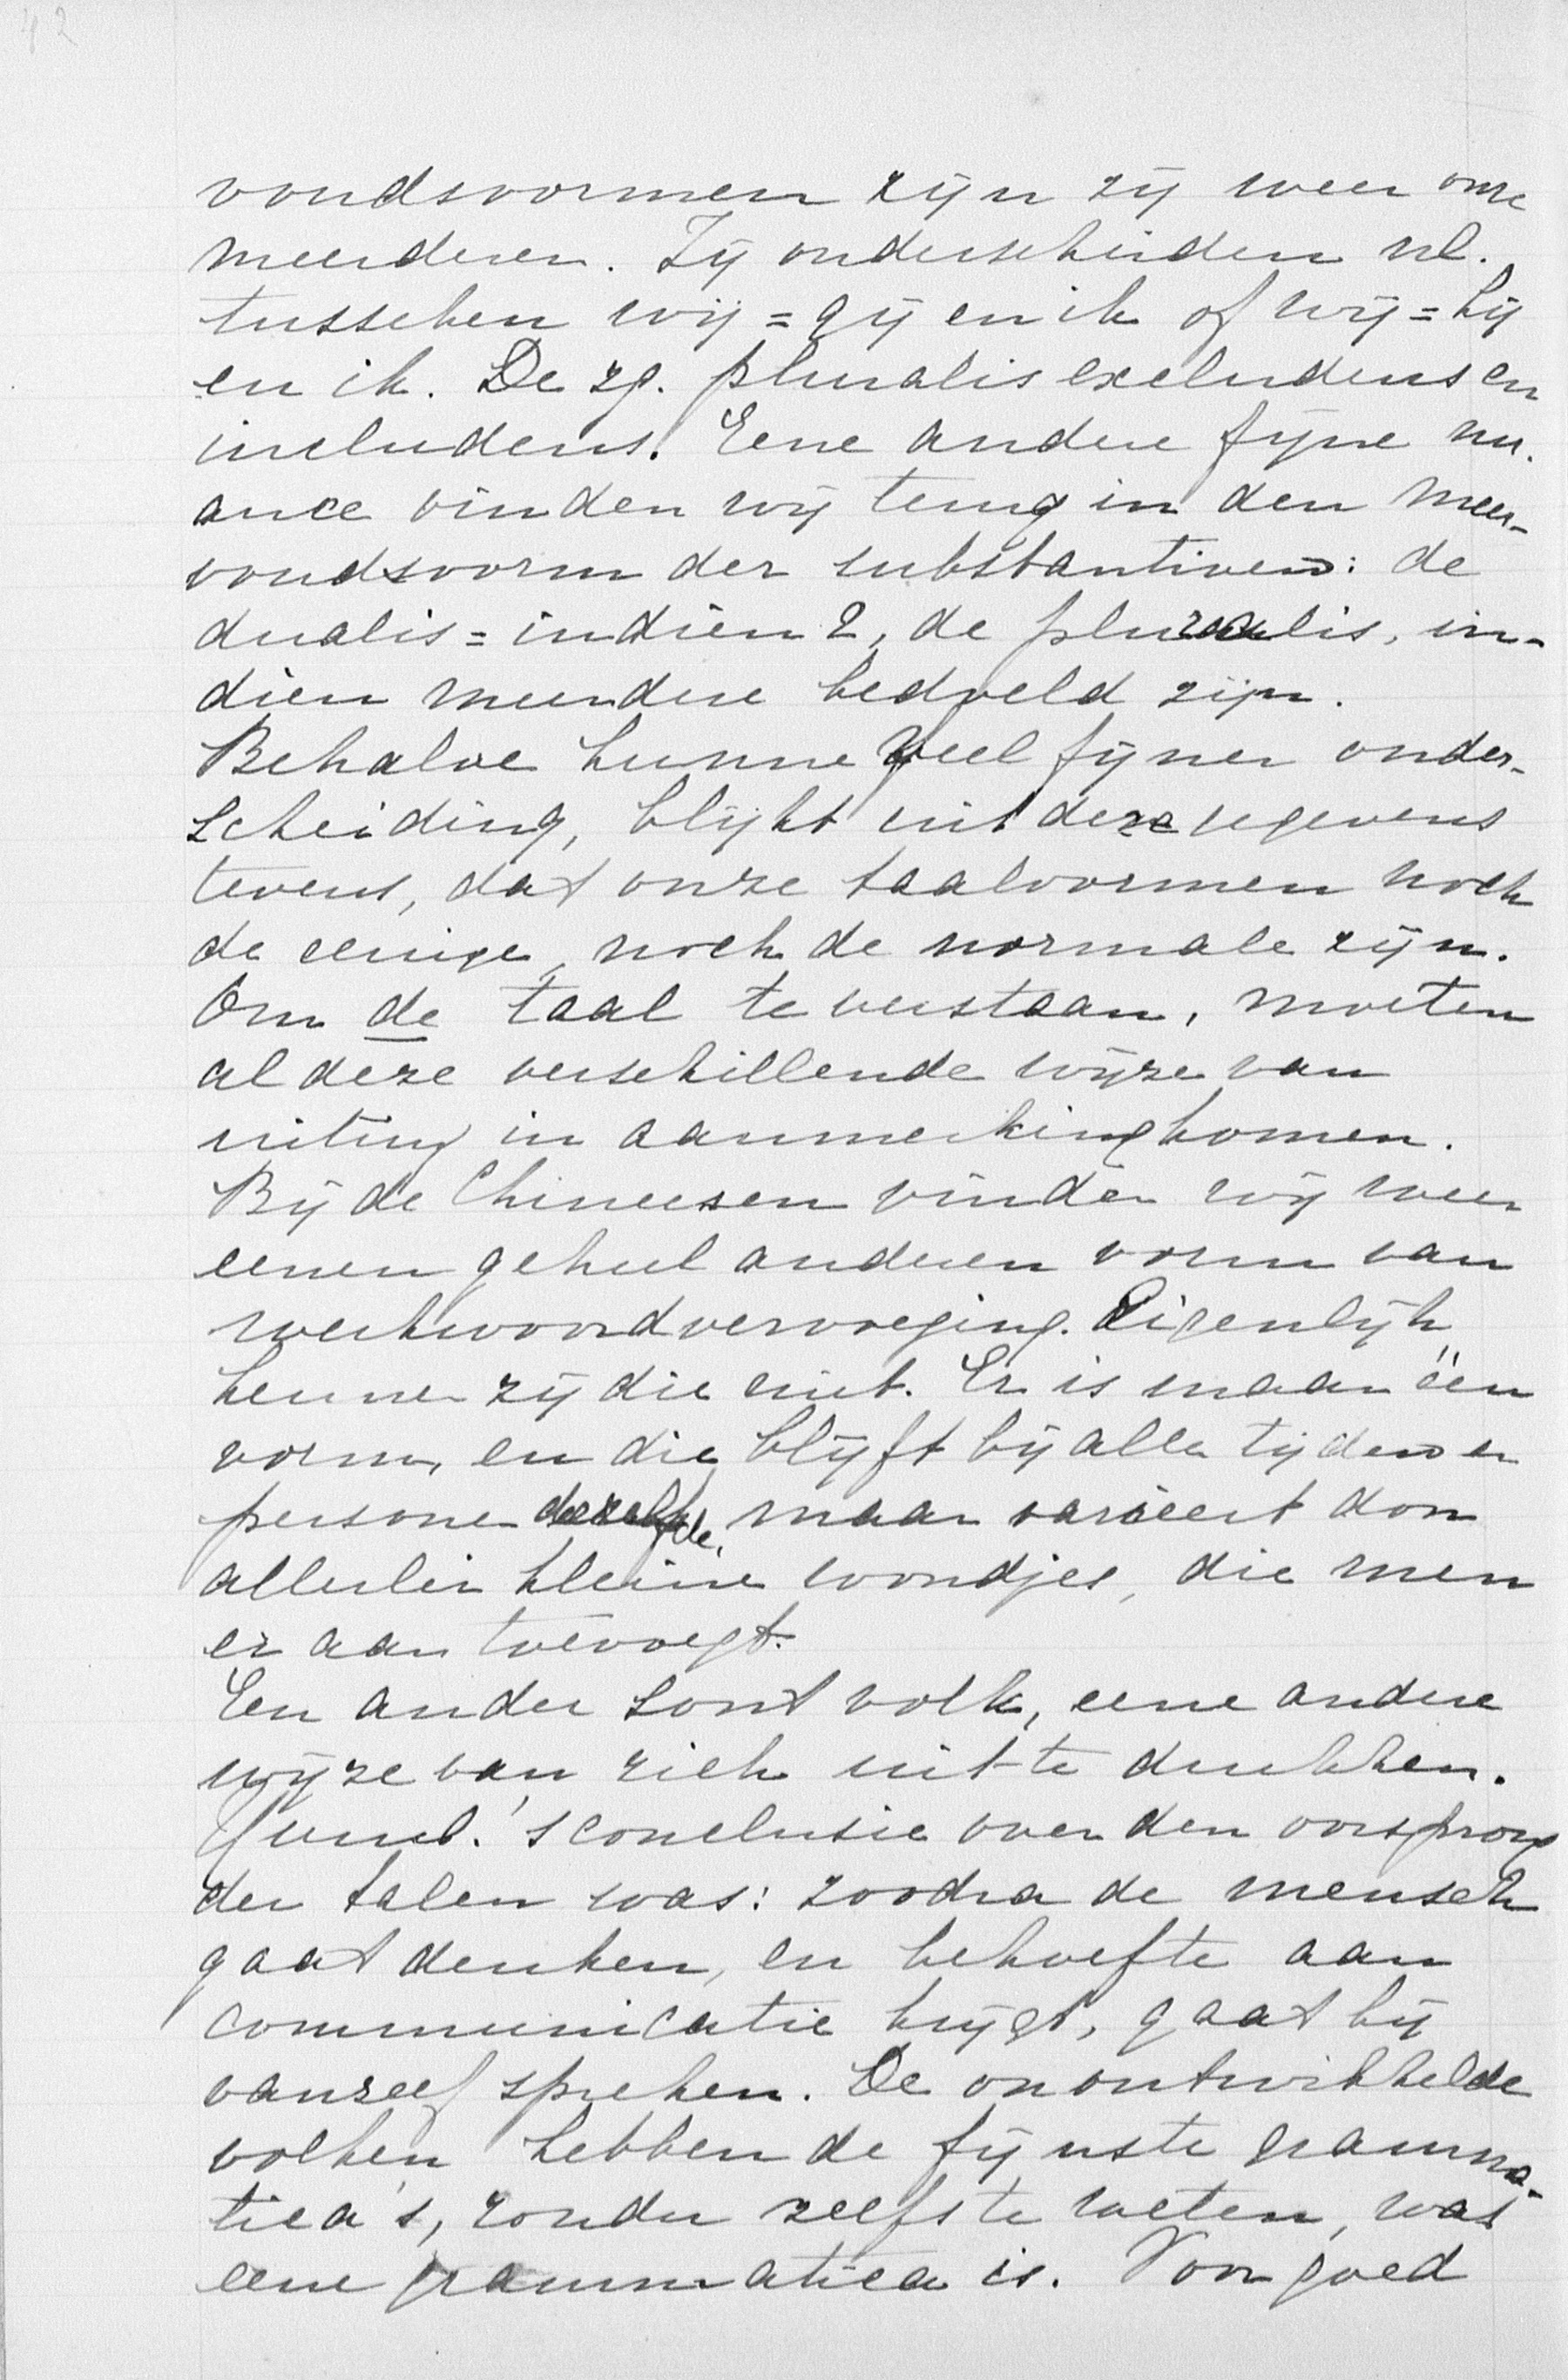 42
voudsvormen zijn zij weer onze
meerderen. Zij onderscheiden nl.
tusschen wij = gij en ik of wij = hij
en ik. De zg. pluralis excludens en
includens. Eene andere fijne nu-
ance vinden wij terug in den meer-
voudsvorm der substantiven: de
dualis = indien 2, de pluralis, in-
dien meerdere bedoeld zijn.
Behalve hunne veel fijner onder-
scheiding, blijkt uit deze gegevens
tevens, dat onze taalvormen noch
de eenige, noch de normale zijn.
Om de taal te verstaan, moeten
al deze verschillende wijze van
uiting in aanmerking komen.
Bij de Chineesen vinden wij weer
eenen geheel anderen vorm van
werkwoordvervoeging. Eigenlijk
kennen zij die niet. Er is maar één
vorm, en die blijft bij alle tijden en
personen dezelfde, maar varieert door
allerlei kleine woordjes, die men
er aan toevoegt.
Een ander soort volk, eene andere
wijze van zich uit te drukken.
Humb.'s conclusie over den oorsprong
der talen was: zoodra de mensch
gaat denken, en behoefte aan
communicatie krijgt, gaat hij
vanzelf spreken. De onontwikkelde
volken hebben de fijnste gramma-
tica's, zonder zelfs te weten, wat
eene grammatica is. Voor goed